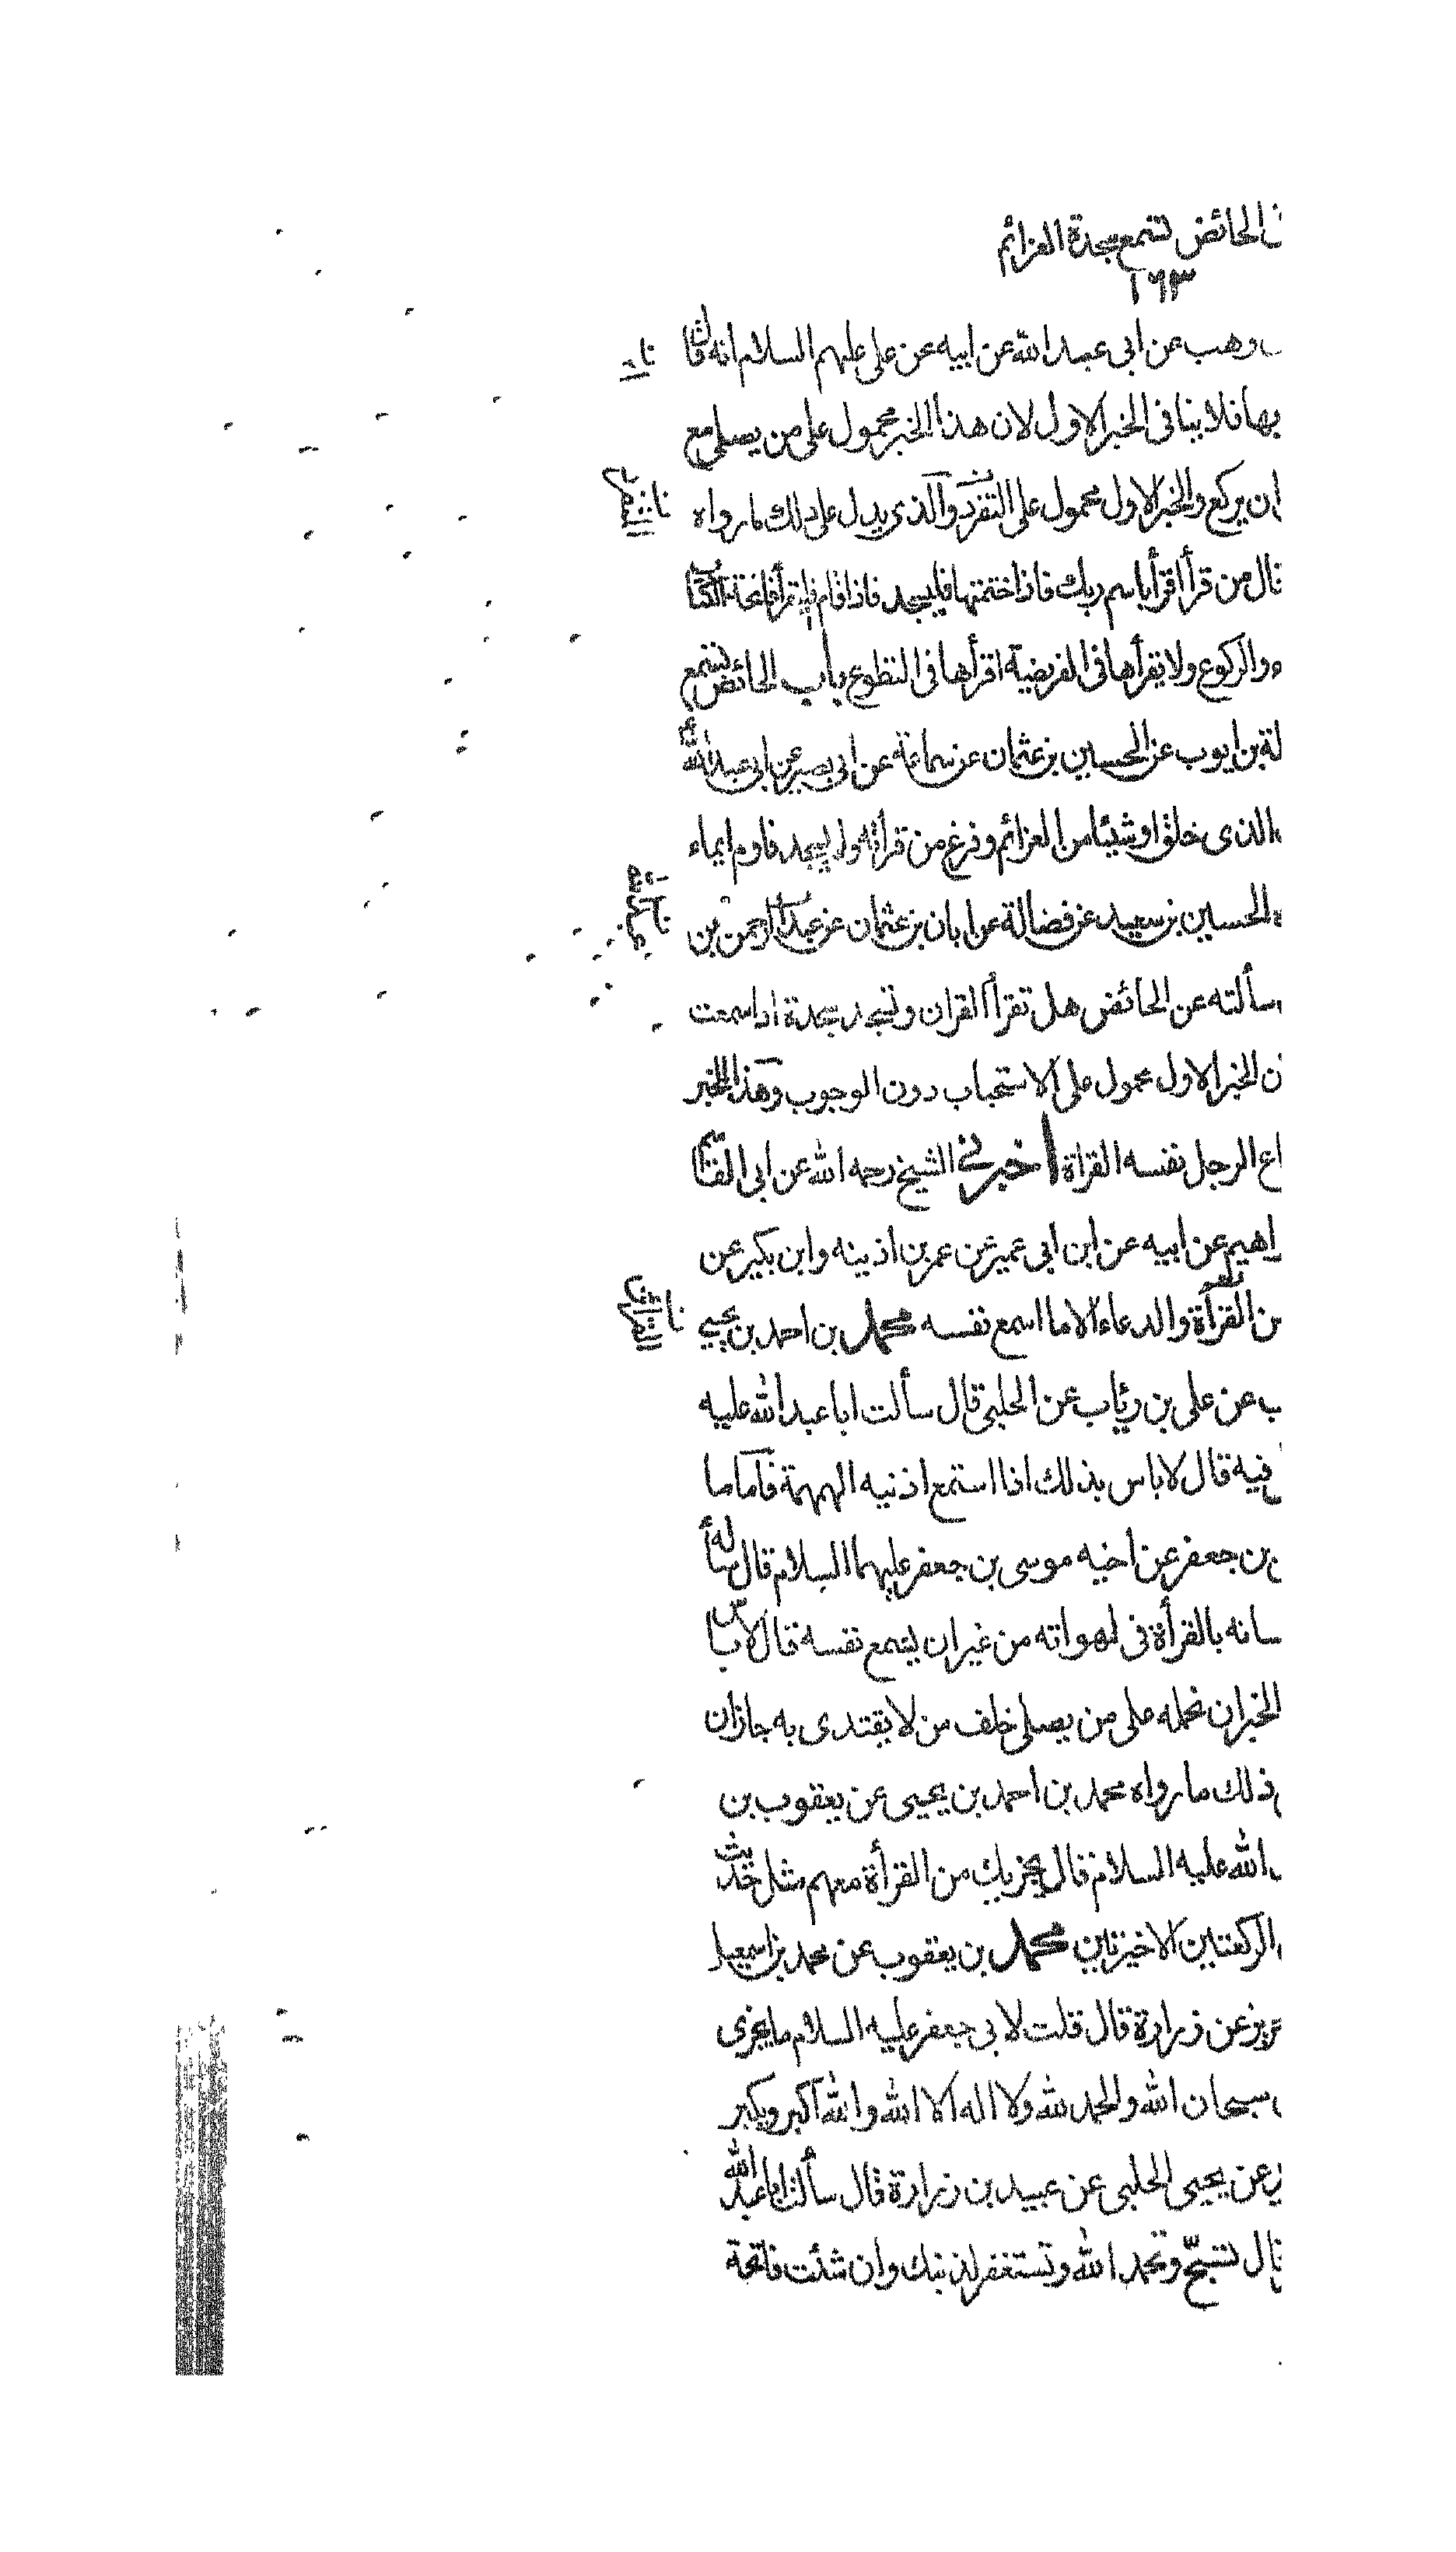 الحائض تستمع سجدة العزائم
١٦٣
وهب عن ابى عبد الله عن ابيه عن على عليهم السلام انه قال
بها فلا ينافى الخبر الاول لان هذا الخبر محمول على من يصلى مع
ان يركع والخبر الاول محمول على التفرد والذى يدل على ذلك ما رواه
قال من قرأ اقرأ باسم ربك فاذا ختمتها فليسجد فاذا قام فليقرأ فاتحة الكتاب
والركوع ولا يقرأها فى الفريضية اقرأها فى التطوع باب الحائض تستمع
لة بن ايوب عن الحسين بن عثمان عن سماعة عن ابى بصير عن ابى عبد الله
الذى خلق او شيئا من العزائم وفرغ من قرائته ولم يسجد فاوم ايماء
الحسين بن سعيد عن فضالة عن ابان بن عثمان عن عبد الرحمن بن
سألته عن الحائض هل تقرأ القران وتسجد سجدة اذا سمعت
ن الخبر الاول محمول على الاستحباب دون الوجوب وهذا الخبر
اع الرجل نفسه القراة اخبرنى الشيخ رحمه الله عن ابى القاسم
راهيم عن ابيه عن ابن ابى عمير عن عمر بن اذينه وابن بكير عن
من القرآة والدعاء الا ما اسمع نفسه محمد بن احمد بن يحيى
ب عن على بن رئاب عن الحلبى قال سألت ابا عبد الله عليه
فيه قال لا باس بذلك اذا استمع اذنيه الهمهمة فاما ما
بن جعفر عن اخيه موسى بن جعفر عليهما السلام قال سأله
سانه بالقرأة فى لهواته من غير ان يسمع نفسه قال لا باس
الخبر ان نحمله على من يصلى خلف من لا يقتدى به جاز ان
ذلك ما رواه محمد بن احمد بن يحيى عن يعقوب بن
الله عليه السلام قال يجزيك من القرأة معهم مثل حديث
الركعتين الاخيرتين محمد بن يعقوب عن محمد بن اسمعيل
ريز عن زرارة قال قلت لابى جعفر عليه السلام ما يجزى
سبحان الله والحمد لله ولا اله الا الله والله اكبر ويكبر
عن يحيى الحلبى عن عبيد بن زرارة قال سألت ابا عبد الله
قال تسبح وتحمد الله وتستغفر لذنبك وان شئت فاتحة